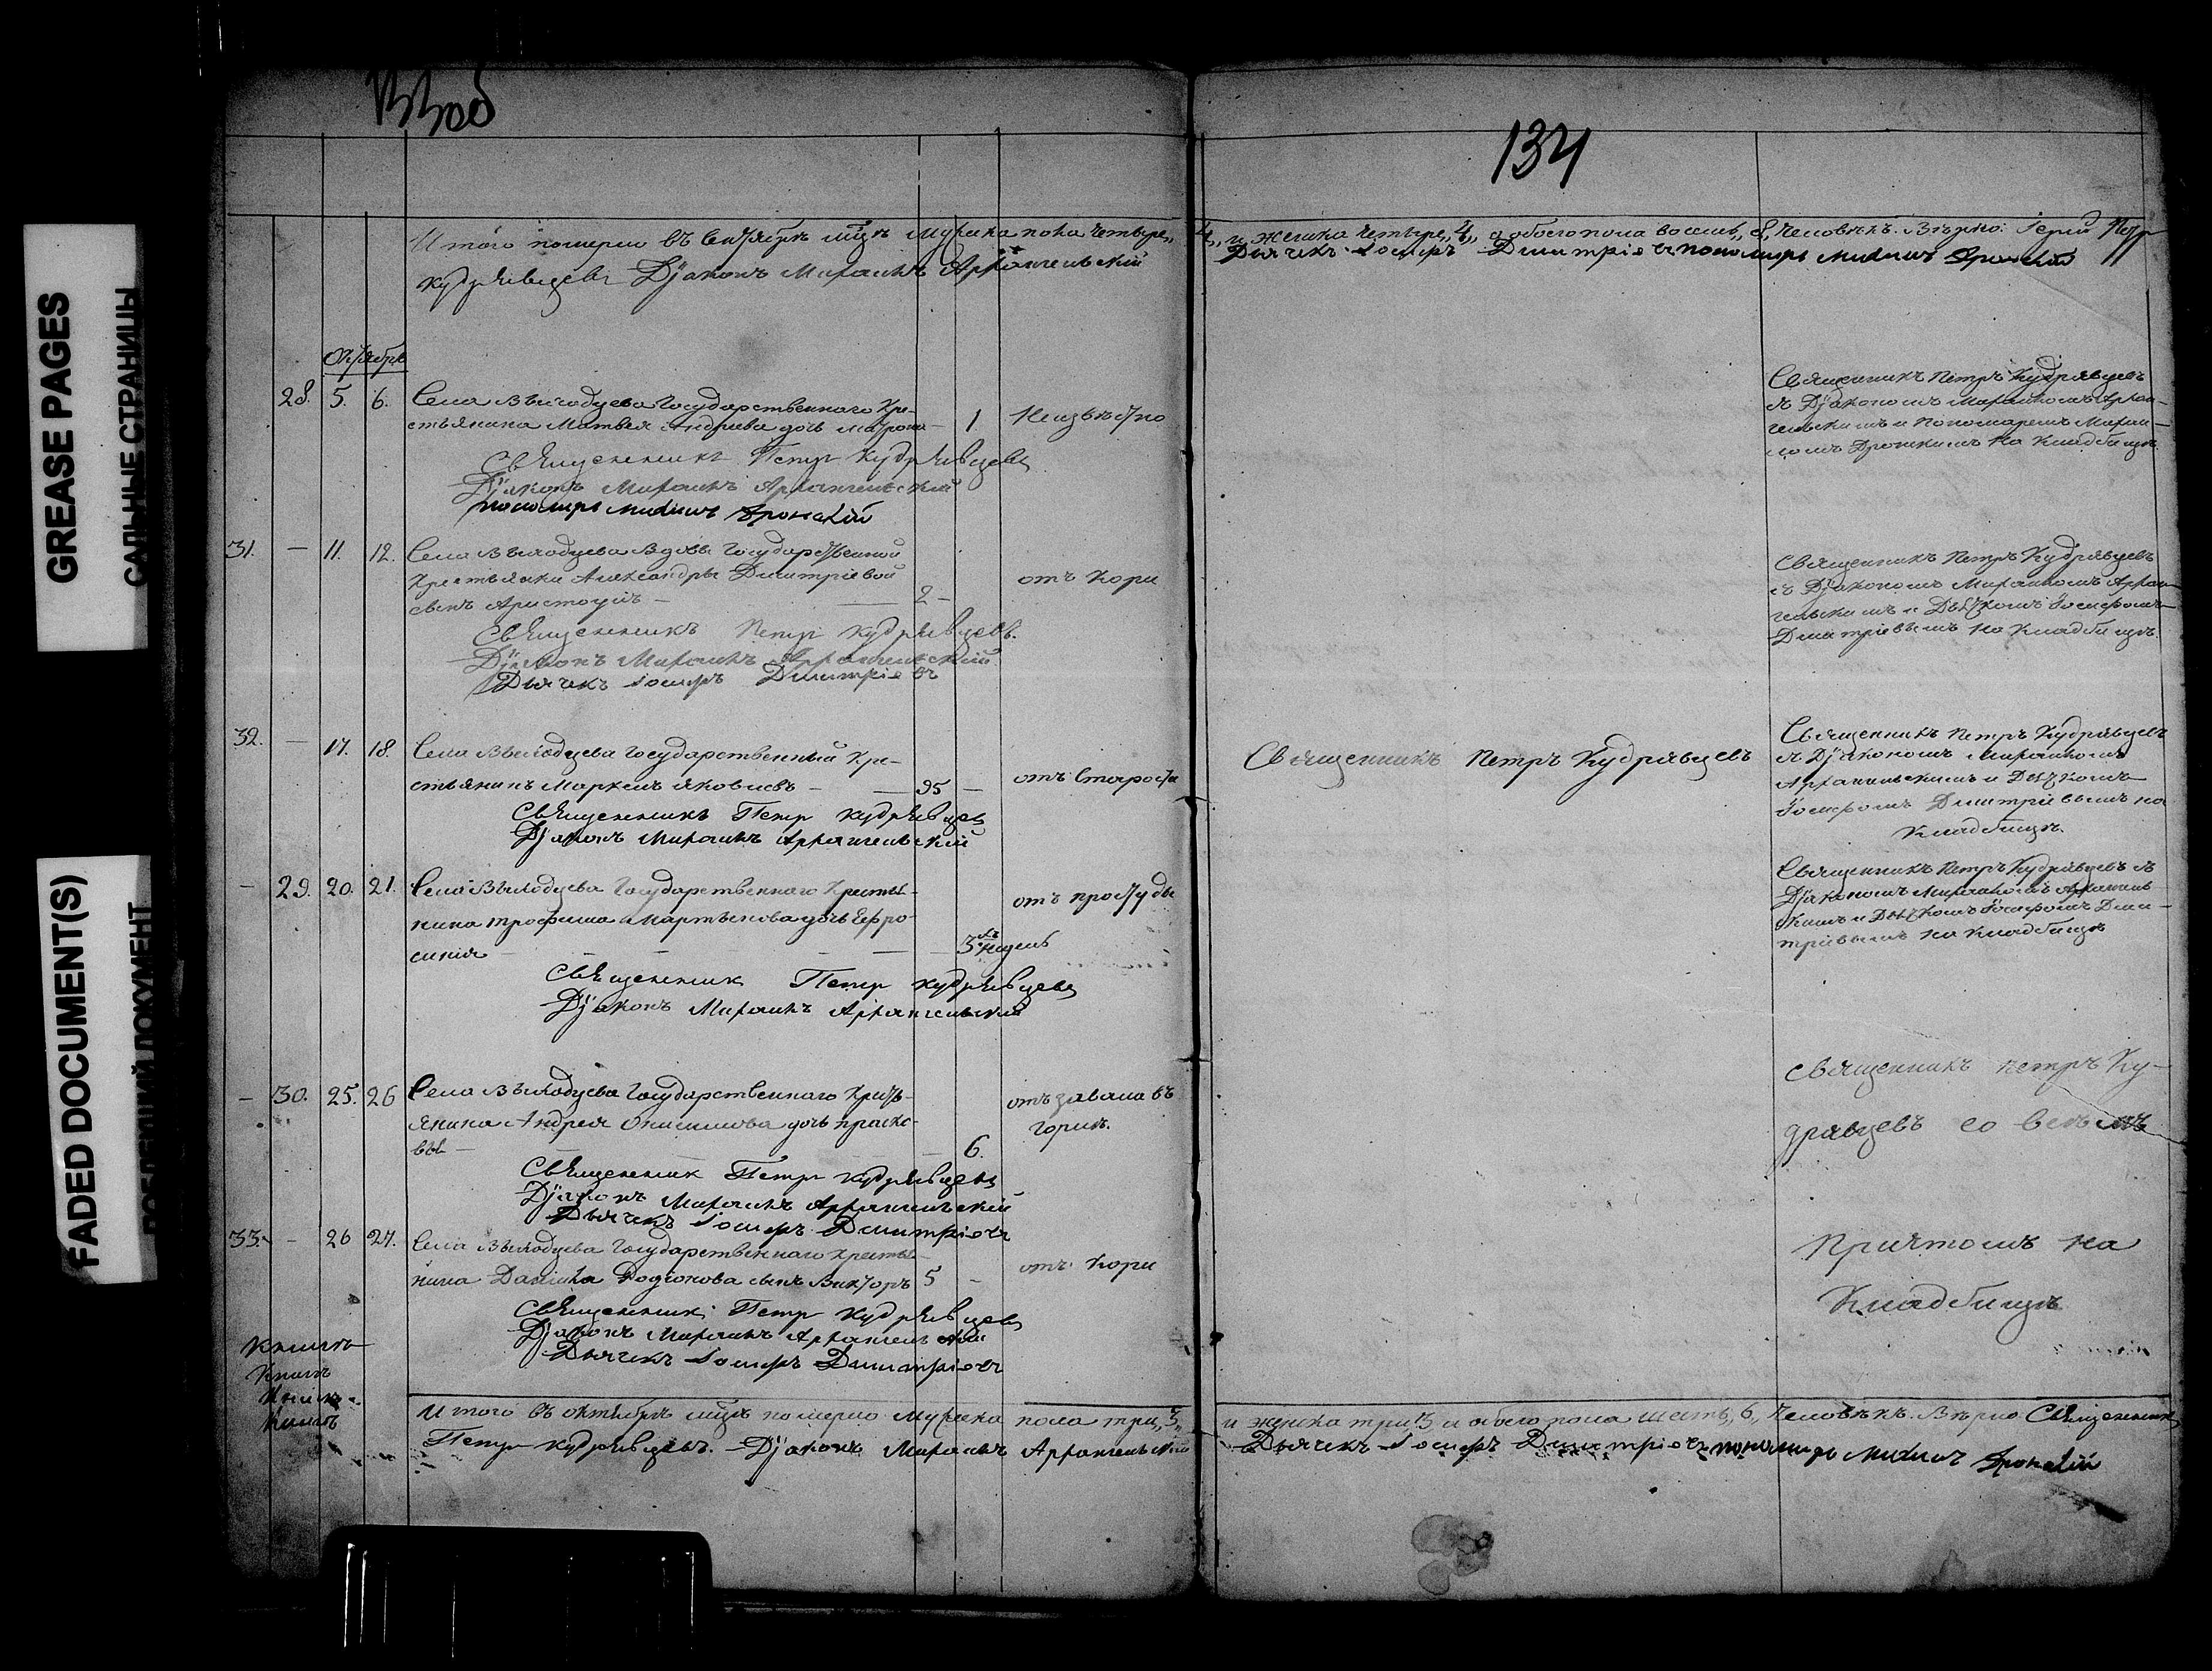 GREASE PAGES
САЛЬНЫЕ СТРАНИЦЫ
FADED DOCUMENT(S)
133об
134
Итого померло въ Сентябрѣ мцѣ Мужска пола четыре
4, и женска четыре, 4, а обоего пола восемь, 8, человѣкъ. Вѣрно: Іерей Петр
Кудрявцевъ Дїаконъ Михаилъ Архангельскій
Дьячекъ Іосифъ Димитріевъ пономарь Михаилъ
Октября
28. 5. 6. Села Выходцева Государственнаго Кре-
стьянина Матвея Андреева дочь Матрона 1 Неизвѣстно
Священникъ Петръ Кудрявцевъ
Дїаконъ Михаилъ Архангельскій
пономарь Михаилъ
Священникъ Петръ Кудрявцевъ
съ Дїакономъ Михаиломъ Архан-
гельскимъ и Пономаремъ Михаи-
ломъ на Кладбищѣ
31. — 11. 12. Села Выходцева Вдовы Государственной
Крестьянки Александры Димитріевой
сынъ — 2 — отъ кори
Священникъ Петръ Кудрявцевъ.
Дїаконъ Михаилъ Архангельскій
Дьячекъ Іосифъ Димитріевъ
Священникъ Петръ Кудрявцевъ
съ Дїакономъ Михаиломъ Архан
гельскимъ и Дьячкомъ Іосифомъ
Димитріевымъ на Кладбищѣ.
32. — 17. 18. Села Выходцева Государственный Кре-
стьянинъ Маркелъ Яковлевъ — 95 — отъ Старости
Священникъ Петр Кудрявцев
Дїаконъ Михаилъ Архангельскій
Священникъ Петръ Кудрявцевъ
Священникъ Петръ Кудрявцевъ
съ Дїакономъ Михаиломъ
Архангельскимъ и Дьячкомъ
Іосифомъ Димитріевымъ на
Кладбищѣ.
— 29. 20. 21. Села Выходцева Государственнаго Крестья-
нина Трофима Мартынова дочь Евфро-
синія — 3хъ недель отъ простуды
Священник Петр Кудрявцевъ
Дїаконъ Михаилъ Архангельскій
Священникъ Петръ Кудрявцевъ съ
Дїакономъ Михаиломъ Архангель
скимъ и Дьячкомъ Іосифомъ Дими-
тріевымъ на Кладбищѣ
— 30. 25. 26 Села Выходцева Государственнаго Кресть-
янина Андрея Онисимова дочь Праско-
вья — 6. отъ завала въ
горлѣ.
Священник Петр Кудрявцевъ
Дїаконъ Михаилъ Архангельскій
Дьячекъ Іосифъ Димитріевъ
Священникъ Петръ Ку-
дрявцевъ со всемъ
Причтомъ на
Кладбищѣ
33. — 26 27. Села Выходцева Государственнаго Крестья-
нина Даниила Родіонова сынъ Викторъ 5 — отъ кори
Священникъ Петр Кудрявцевъ
Дїаконъ Михаилъ Архангельскій
Дьячекъ Іосифъ Димитріевъ
Итого въ октябрѣ мцѣ померло мужска пола три, 3,
и женска три, 3 и обоего пола шесть, 6, человѣкъ. Вѣрно Священникъ
Петръ Кудрявцевъ. Дїаконъ Михаилъ Архангельскій
Дьячекъ Іосифъ Димитріевъ пономарь Михаилъ